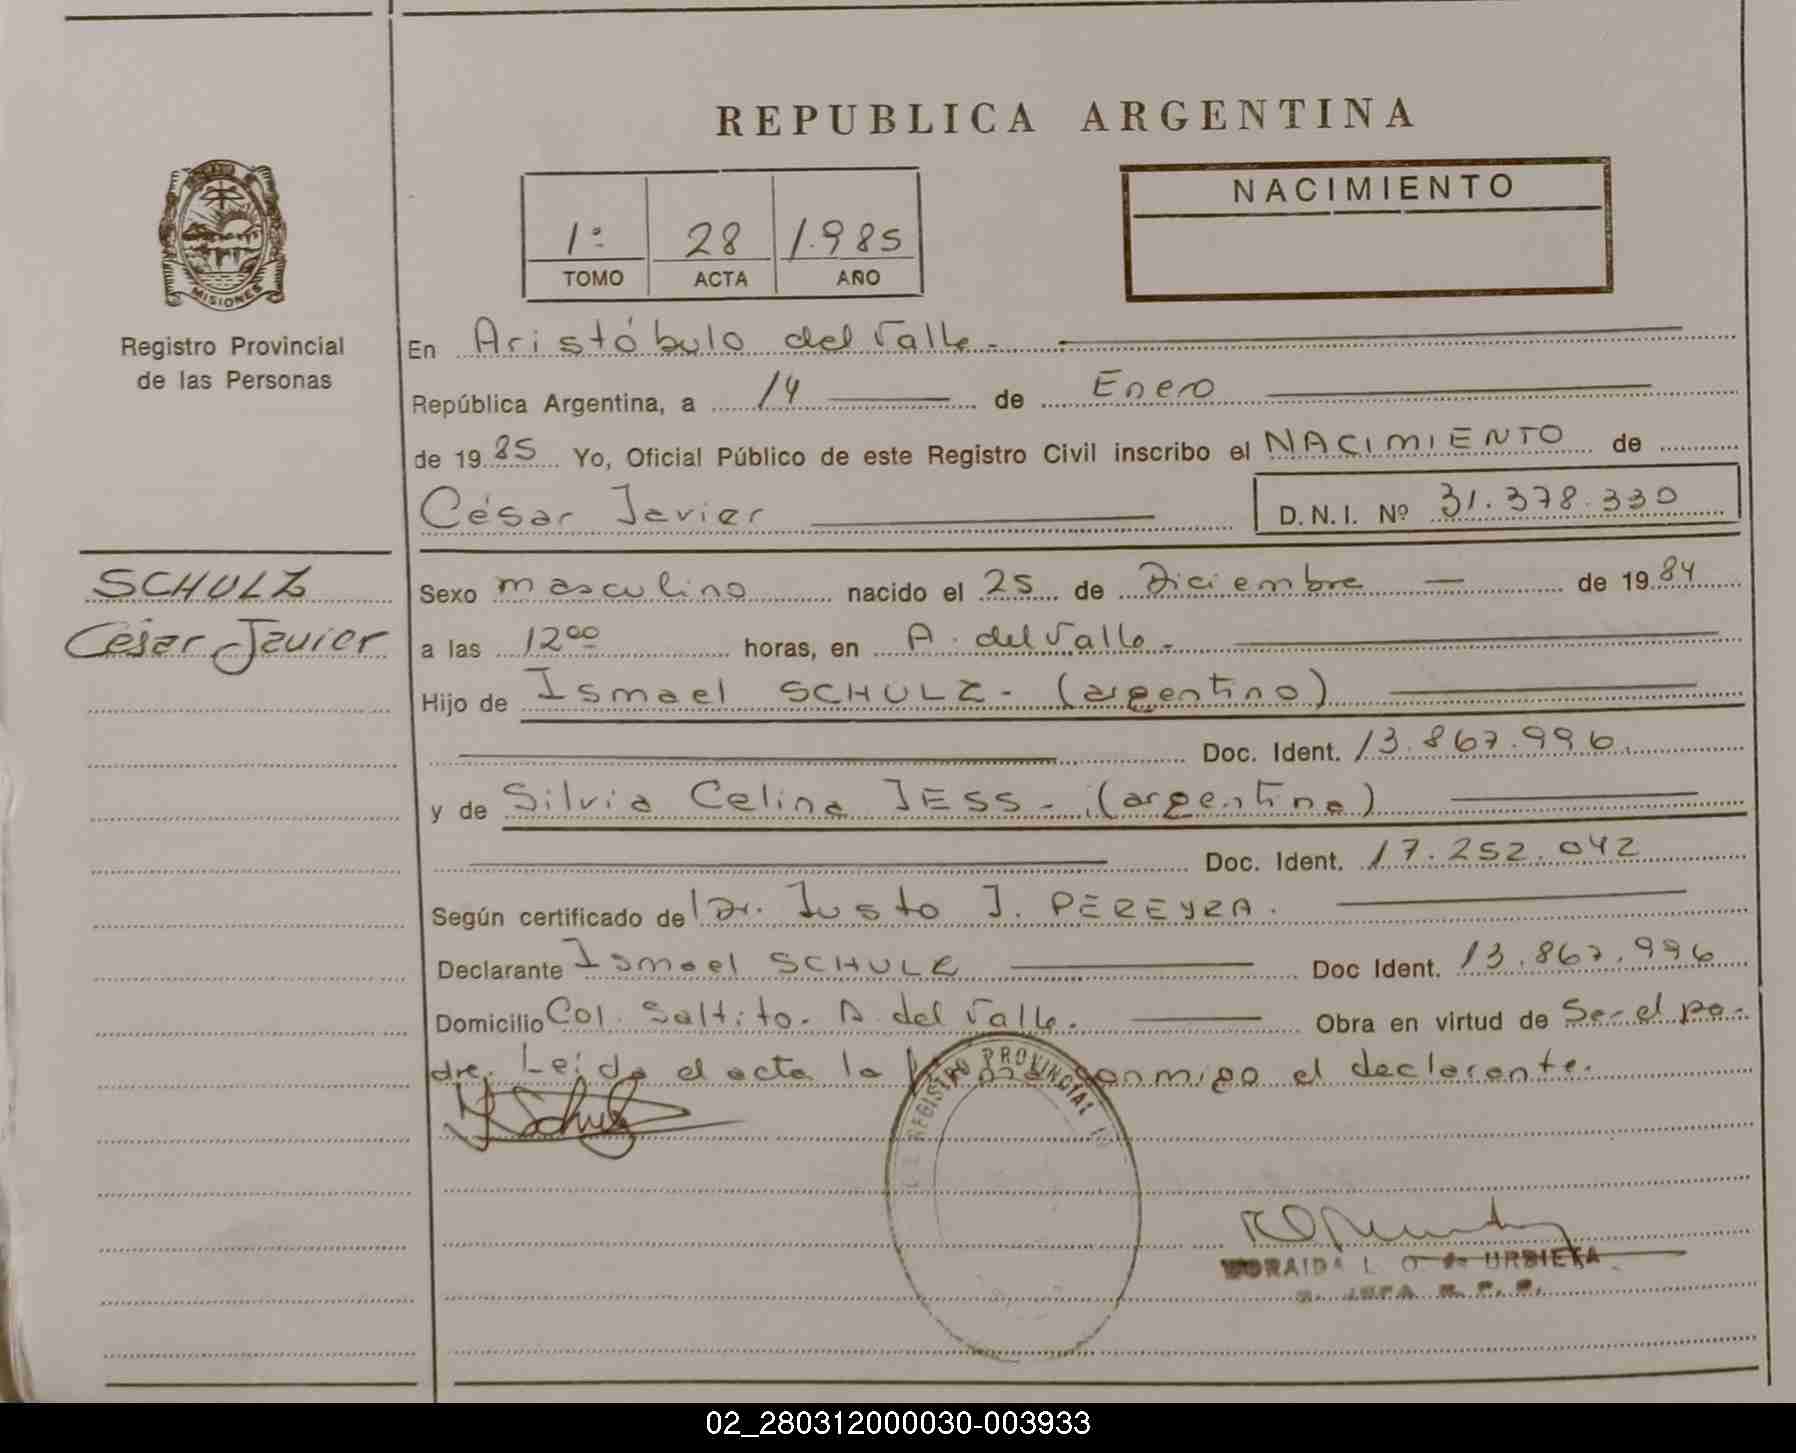 REPUBLICA ARGENTINA
NACIMIENTO
1º 28 1.985
TOMO ACTA AÑO
MISIONES
Registro Provincial
de las Personas
En Aristóbulo del Valle.
República Argentina, a 14 de Enero
de 19 85 Yo, Oficial Público de este Registro Civil inscribo el NACIMIENTO de
César Javier D.N.I. Nº 31.378.330
SCHULZ
César Javier
Sexo masculino nacido el 25 de Diciembre de 19 84
a las 12 00 horas, en A. del Valle.
Hijo de Ismael SCHULZ - (argentino)
Doc. Ident. 13.867.996
y de Silvia Celina JESS - (argentina)
Doc. Ident. 17.252.042
Según certificado de Dr. Justo J. PEREYRA.
Declarante Ismael SCHULZ Doc Ident. 13.867.996
Domicilio Col. Saltito. A. del Valle. Obra en virtud de Ser el pa-
dre. Leída el acta la conmigo el declarante.
Schulz
REGISTRO PROVINCIAL
URBIETA
02_280312000030-003933